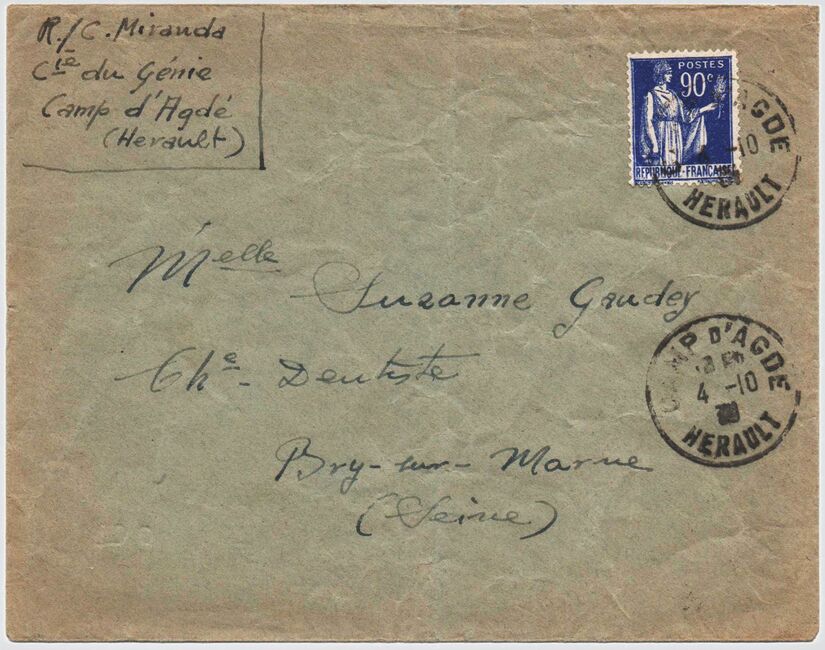 R./C. Miranda
Cie du Génie
Camp d'Agdé
(Herault)
POSTES
90c
REPUBLIQUE FRANCAISE
AGDE
4 -10
HERAULT
Melle
Suzanne Gaudey
Che- Dentiste
Bry-sur-Marne
(Seine)
CAMP D'AGDE
4 -10
HERAULT